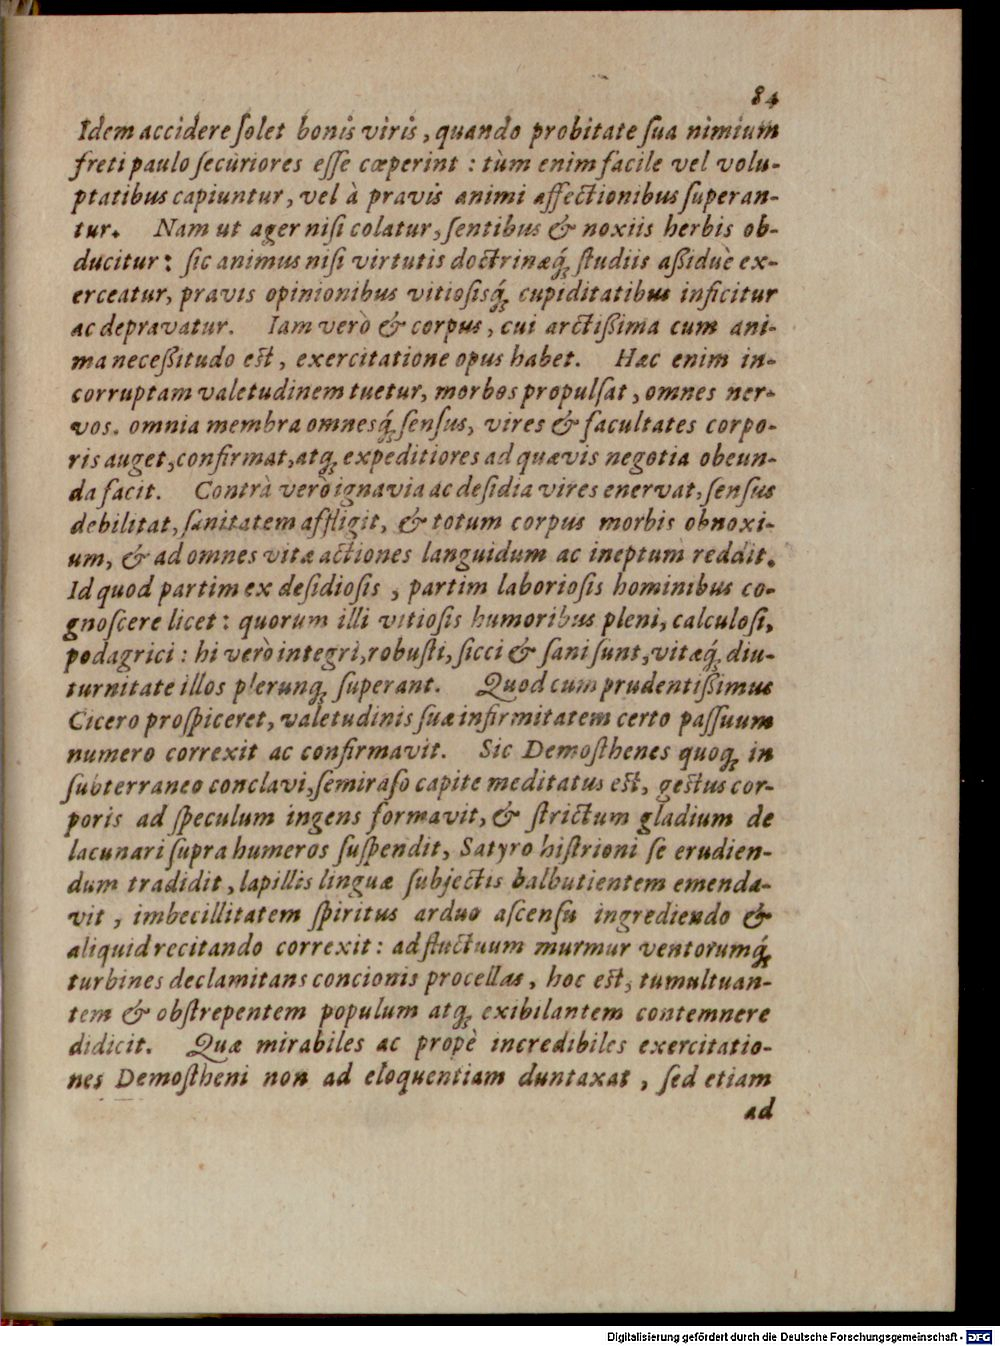 84
Idem accidere ſolet bonis viris, quando probitate ſua nimium
freti paulo ſecuriores eſſe cœperint : tùm enim facile vel volu-
ptatibus capiuntur, vel à pravis animi affectionibus ſuperan-
tur. Nam ut ager niſi colatur, ſentibus & noxiis herbis ob-
ducitur: ſic animus niſi virtutis doctrinæq́; ſtudiis aßiduè ex-
erceatur, pravis opinionibus vitioſisq́; cupiditatibus inficitur
ac depravatur. Iam verò & corpus, cui arctißima cum ani-
ma neceßitudo eſt, exercitatione opus habet. Hæc enim in-
corruptam valetudinem tuetur, morbos propulſat, omnes ner-
vos. omnia membra omnesq́; ſenſus, vires & facultates corpo-
ris auget, confirmat, atq; expeditiores ad quævis negotia obeun-
da facit. Contrà verò ignavia ac deſidia vires enervat, ſenſus
debilitat, ſanitatem affligit, & totum corpus morbis obnoxi-
um, & ad omnes vitæ actiones languidum ac ineptum reddit.
Id quod partim ex deſidioſis, partim laborioſis hominibus co-
gnoſcere licet: quorum illi vitioſis humoribus pleni, calculoſi,
podagrici : hi verò integri, robuſti, ſicci & ſani ſunt, vitæq́; diu-
turnitate illos plerunq; ſuperant. Quod cum prudentißimus
Cicero proſpiceret, valetudinis ſuæ infirmitatem certo paſſuum
numero correxit ac confirmavit. Sic Demoſthenes quoq; in
ſubterraneo conclavi, ſemiraſo capite meditatus eſt, geſtus cor-
poris ad ſpeculum ingens formavit, & ſtrictum gladium de
lacunari ſupra humeros ſuſpendit, Satyro hiſtrioni ſe erudien-
dum tradidit, lapillis linguæ ſubjectis balbutientem emenda-
vit, imbecillitatem ſpiritus arduo aſcenſu ingrediendo &
aliquid recitando correxit: ad fluctuum murmur ventorumq́;
turbines declamitans concionis procellas, hoc eſt, tumultuan-
tem & obſtrepentem populum atq; exibilantem contemnere
didicit. Quæ mirabiles ac propè incredibiles exercitatio-
nes Demoſtheni non ad eloquentiam duntaxat, ſed etiam
ad
Digitalisierung gefördert durch die Deutsche Forschungsgemeinschaft - DFG